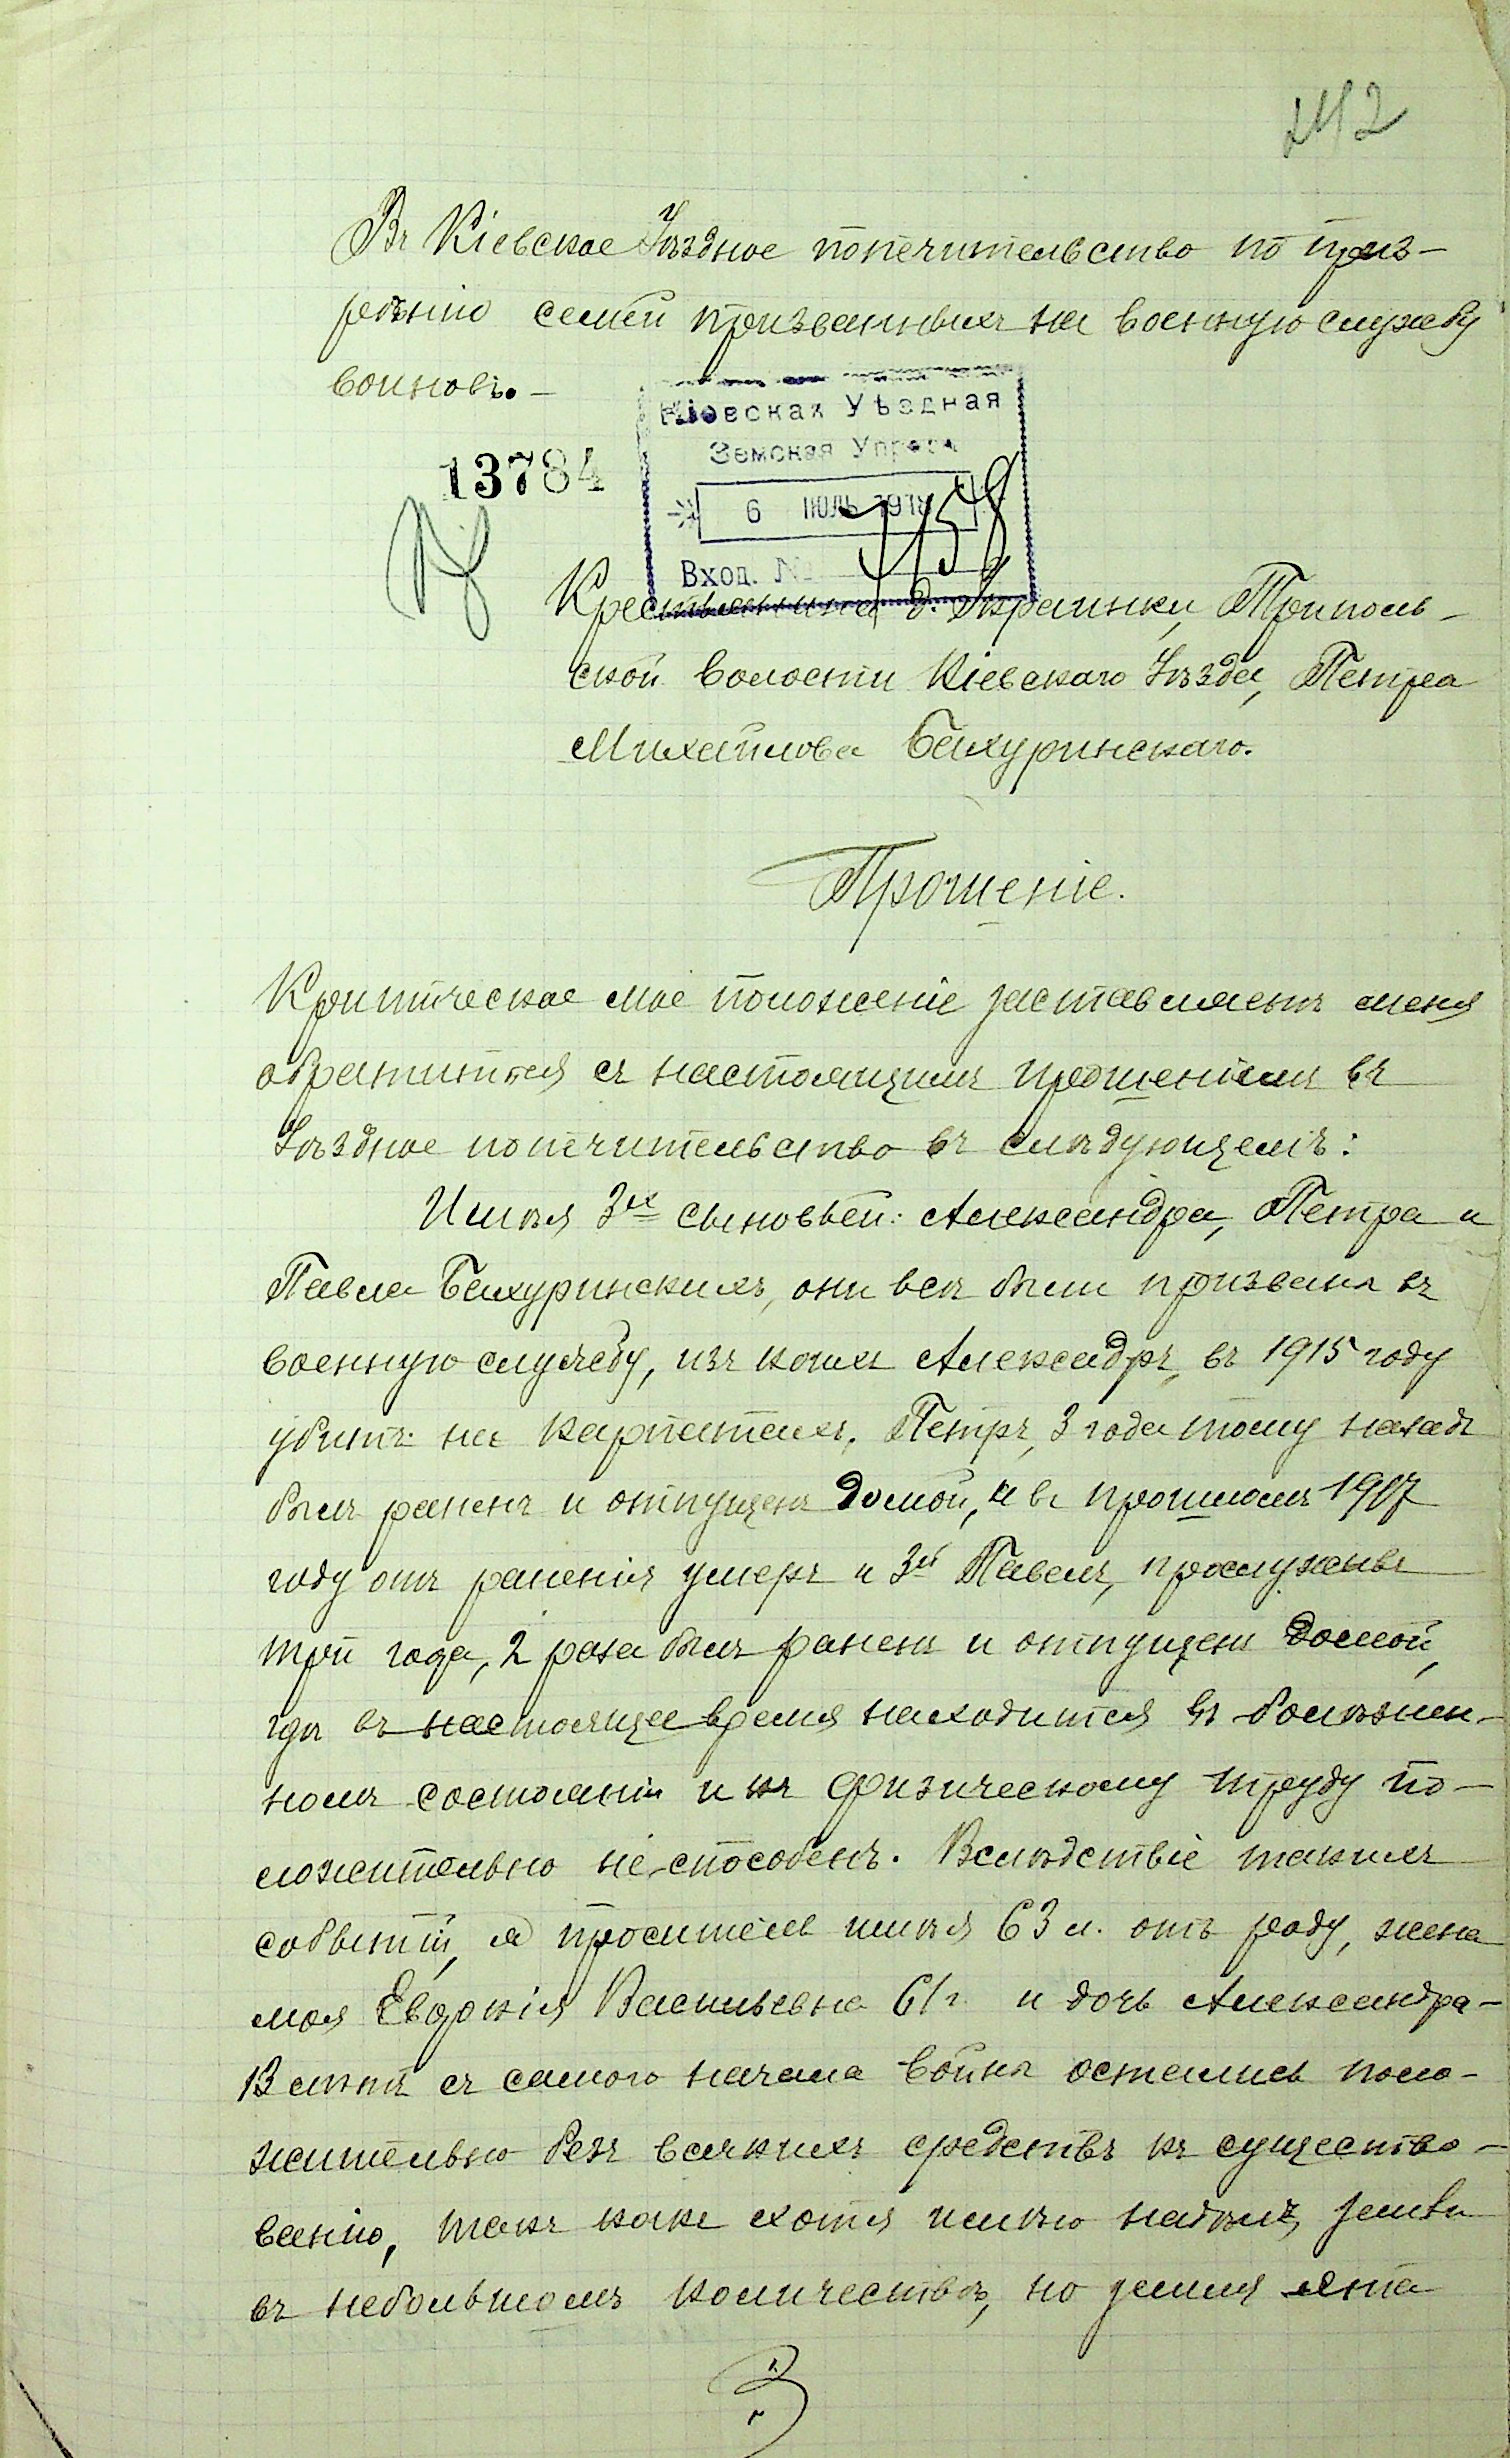 242
Въ Кіевское Уѣздное попечительство по приз-
рѣнію семей призванныхъ на военную службу
воиновъ. –
13784
Кіевская Уѣздная
Земская Управа
6 ІЮЛЬ 1918
Вход. № 7158
Крестьянина д. Украинки, Триполь-
ской волости Кіевскаго Уѣзда, Петра
Михайлова Бахуринскаго.
Прошеніе.
Критическое мое положеніе заставляетъ меня
обратится съ настоящимъ прошеніемъ въ
Уѣздное попечительство въ слѣдующемъ:
Имѣя 3хъ сыновьей: Александра, Петра и
Павла Бахуринскихъ, они всѣ были призваны въ
военную службу, изъ коихъ Александръ, въ 1915 году
убитъ на Карпатахъ, Петръ, 3 года тому назадъ
былъ раненъ и отпущенъ домой, и въ прошломъ 1917
году отъ раненія умеръ и 3й Павелъ, прослуживъ
три года, 2 раза былъ раненъ и отпущенъ домой,
гдѣ въ настоящее время находится въ болѣзнен-
номъ состояніи и къ физическому труду по-
ложительно не способенъ. Вслѣдствіе такихъ
событій, я проситель имѣя 63 л. отъ роду, жена
моя Евдокія Васильевна 61 г. и дочь Александра -
13 лѣтъ съ самого начала войны остались поло-
жительно безъ всякихъ средствъ къ существо-
ванію, такъ какъ хотя имѣю надѣлъ земли
въ небольшомъ количествѣ, но земля эта